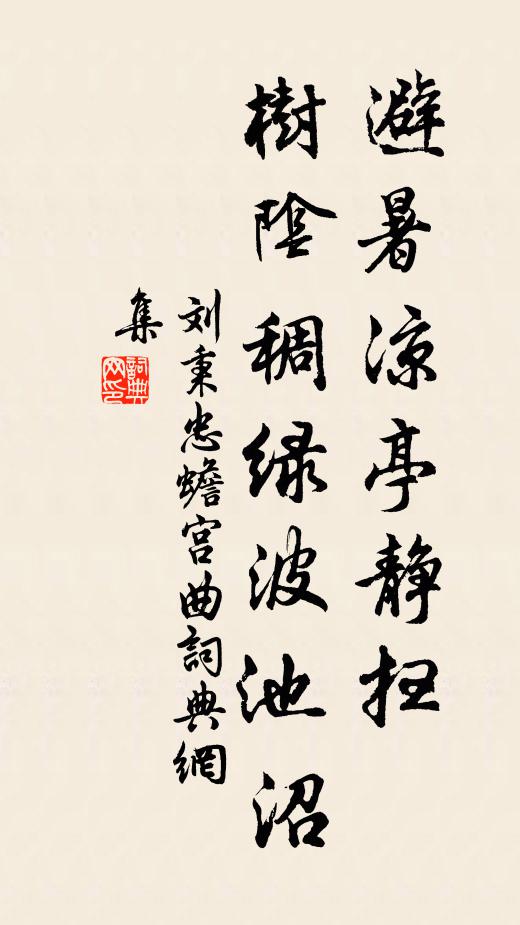 避暑凉亭静扫
樹陰稠绿波池沼
刘秉忠蟾宫曲詞典網
集
詞典网印